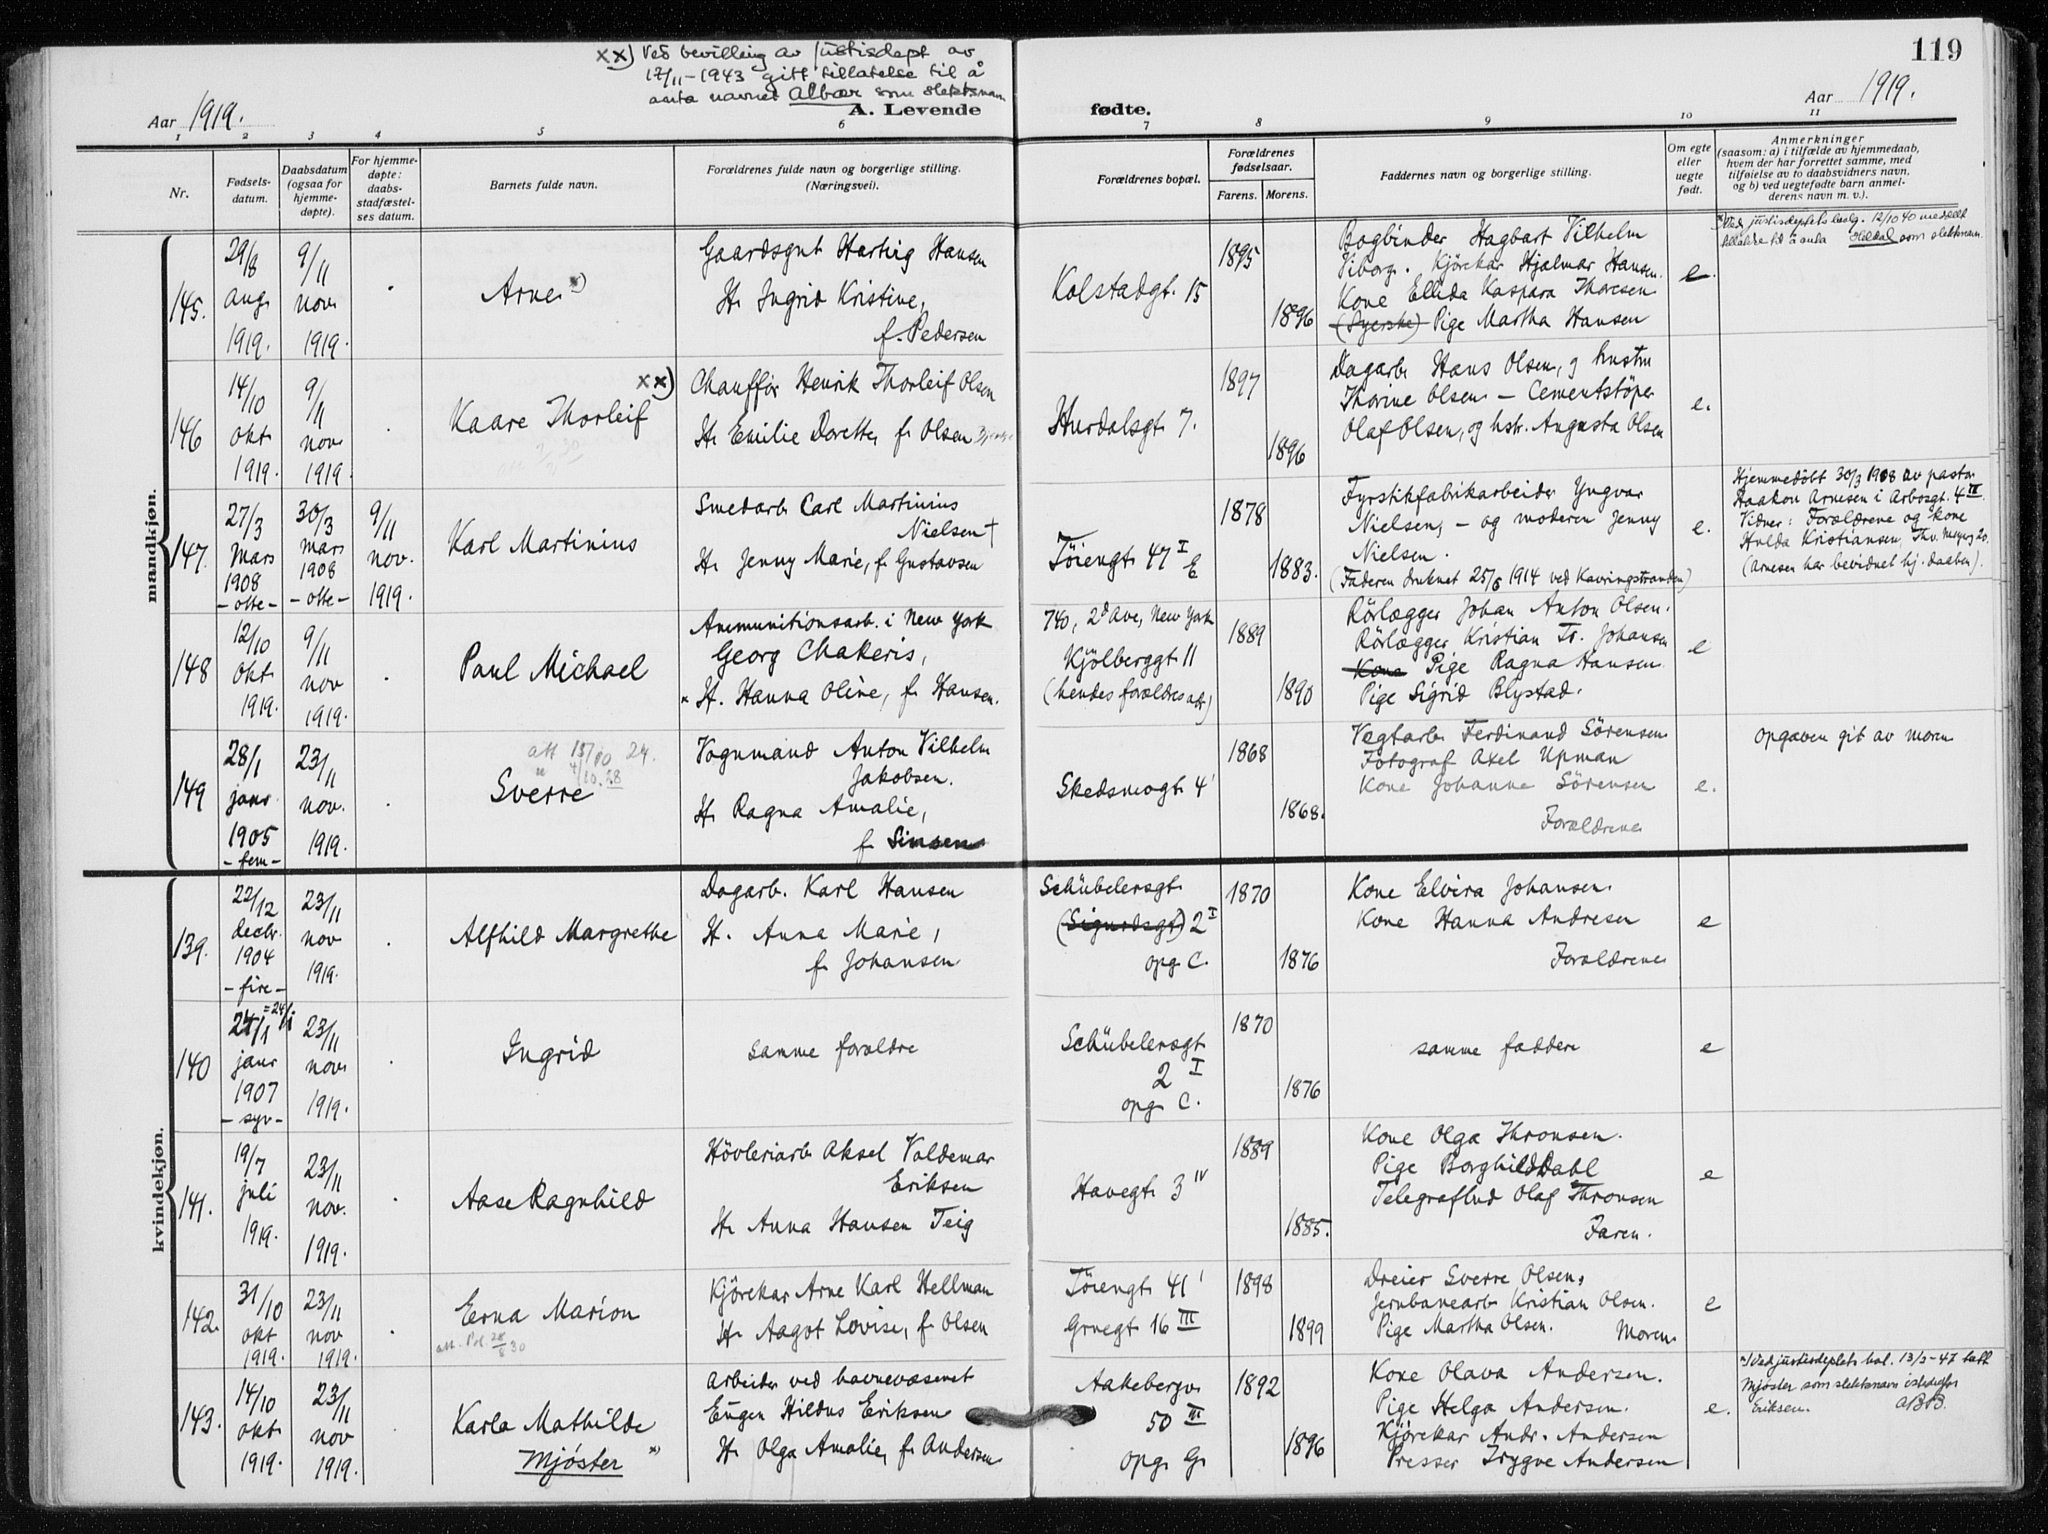 xx) Ved bevilling av justisdept av
17/11-1943 gitt tillatelse til å
anta navnet Albær som slektsnavn
119
Aar 1919.
A. Levende fødte.
Aar 1919.
1 2 3 4 5 6 7 8 9 10 11
Nr.
Fødsels-
datum.
Daabsdatum
(ogsaa for
hjemme-
døpte).
For hjemme-
døpte:
daabs-
stadfæstel-
ses datum.
Barnets fulde navn.
Forældrenes fulde navn og borgerlige stilling.
(Næringsvei).
Forældrenes bopæl.
Forældrenes
fødselsaar.
Farens. Morens.
Faddernes navn og borgerlige stilling.
Om egte
eller
uegte
født.
Anmerkninger
(saasom: a) i tilfælde av hjemmedaab,
hvem der har forrettet samme, med
tilføielse av to daabsvidners navn,
og b) ved uegtefødte barn anmel-
derens navn m. v.).
mandkjøn.
145.
29/8
aug.
1919.
9/11
nov.
1919.
Arne x)
Gaardsgut Hartvig Hansen
H. Ingrid Kristine,
f. Pedersen
Kolstadgt. 15
1895
1896
Bogbinder Hagbart Vilhelm
Viborg. Kjörekar Hjalmar Hansen.
Kone Ellida Kaspara Thoresen
(Syerske) Pige Martha Hansen
e.
x) Ved justisdeptets bevilg. 12/10 40 meddelt
tillatelse til å anta som slektsnavn.
146
14/10
okt
1919.
9/11
nov.
1919.
xx)
Kaare Thorleif
Chaufför Henrik Thorleif Olsen
H. Emilie Dorette, f. Olsen
Hurdalsgt. 7.
1897
1896
Dagarb. Hans Olsen, og hustru
Thorine Olsen – Cementstöper
Olaf Olsen, og hstr. Augusta Olsen
e.
147.
27/3
Mars
1908
- otte -
30/3
mars
1908
- otte -
9/11
nov.
1919.
Karl Martinius
Smedarb. Carl Martinius
Nielsen †
H. Jenny Marie, f. Gustavsen
Töiengt. 47 I
E
1878
1883.
Fyrstikfabrikarbeider Yngvar
Nielsen, – og moderen Jenny
Nielsen.
(Faderen druknet 25/6 1914 ved Kavringstranden)
e.
Hjemmedöbt 30/3 1908 av pastor
Haakon Arnesen i Arbosgt. 4 III.
Vidner: Forældrene og kone
Hulda Kristiansen, Thv. Meyersg 20.
(Arnesen har bevidnet hj. daaben).
148
12/10
okt
1919.
9/11
nov
1919.
Paul Michael
Ammunitionsarb. i New York
Georg Chakeris,
x H. Hanna Oline, f. Hansen.
740, 2d Ave, New York
Kjölberggt. 11
(hendes forældres adr.)
1889
1890
Rörlægger Johan Anton Olsen.
Rörlægger Kristian Tr. Johansen
Kone Pige Ragna Hansen.
Pige Sigrid Blystad.
e
149
28/1
janr.
1905
- fem -
23/11
nov.
1919.
att 15/10 24.
" 4/10.28
Sverre
Vognmand Anton Vilhelm
Jakobsen.
H. Ragna Amalie,
f. Simsen
Skedsmogt. 4 I
1868
1868.
Vegtarb. Ferdinand Sörensen
Fotograf Axel Upman
Kone Johanne Sörensen
Forældrene
e.
opgaven git av moren
kvindekjøn.
139.
22/12
decbr.
1904
- fire -
23/11
nov
1919.
Alfhild Margrethe
Dagarb. Karl Hansen
H. Anna Marie,
f. Johansen
Schübelersgt.
(Sigurdsgt.) 2 I
opg. C.
1870
1876
Kone Elvira Johansen.
Kone Hanna Andresen
Forældrene
e
140
24/1 = 24/1
janr
1907
- syv -
23/11
nov.
1919.
Ingrid
samme forældre
Schübelersgt.
2 I
opg. C.
1870
1876
samme faddere
e
141.
19/7
juli
1919.
23/11
nov.
1919.
Aase Ragnhild
Hövleriarb. Aksel Valdemar
Eriksen
H. Anna Hansen Teig
Havegt. 3 IV
1889
1885.
Kone Olga Thronsen.
Pige Borghild Dahl
Telegrafbud Olaf Thronsen
Faren.
e
142.
31/10
okt
1919.
23/11
nov
1919.
Erna Marion
att. Pol. 28/8 30
Kjörekar Arne Karl Hellman
H. Aagot Lovise, f. Olsen
Töiengt. 41 I
Gruegt. 16 III
1898
1899
Dreier Sverre Olsen,
Jernbanearb. Kristian Olsen.
Pige Martha Olsen. Moren.
e
143.
14/10
okt.
1919.
23/11
nov
1919.
Karla Mathilde
Mjöster x)
Arbeider ved havnevæsenet
Eugen Hildus Eriksen
H. Olga Amalie, f. Andersen
Aakebergv.
50 III
opg. G.
1892
1896
Kone Olava Andersen.
Pige Helga Andersen.
Kjörekar Andr. Andersen
Presser Trygve Andersen
e.
x) Ved justisdeptets bev. 13/3-47 tatt
Mjöster som slektsnavn istedetfor
Eriksen.